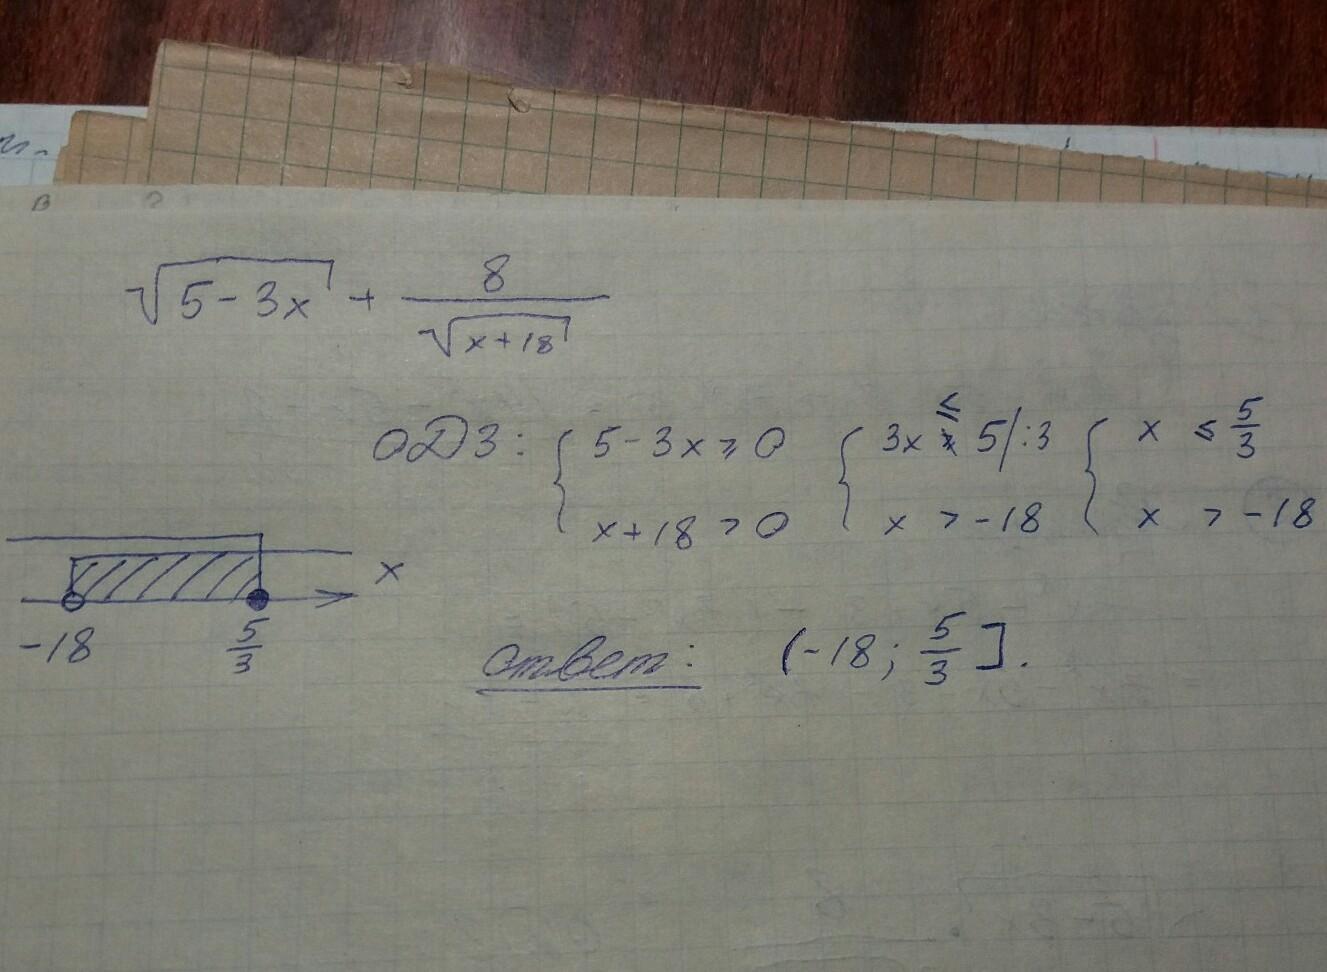 √(5-3x) + 8/√(x+18)
ОДЗ: { 5-3x ≥ 0 { 3x ≤ 5 /:3 { x ≤ 5/3
x+18 > 0 x > -18 x > -18
x
-18 5/3
ответ: (-18; 5/3].